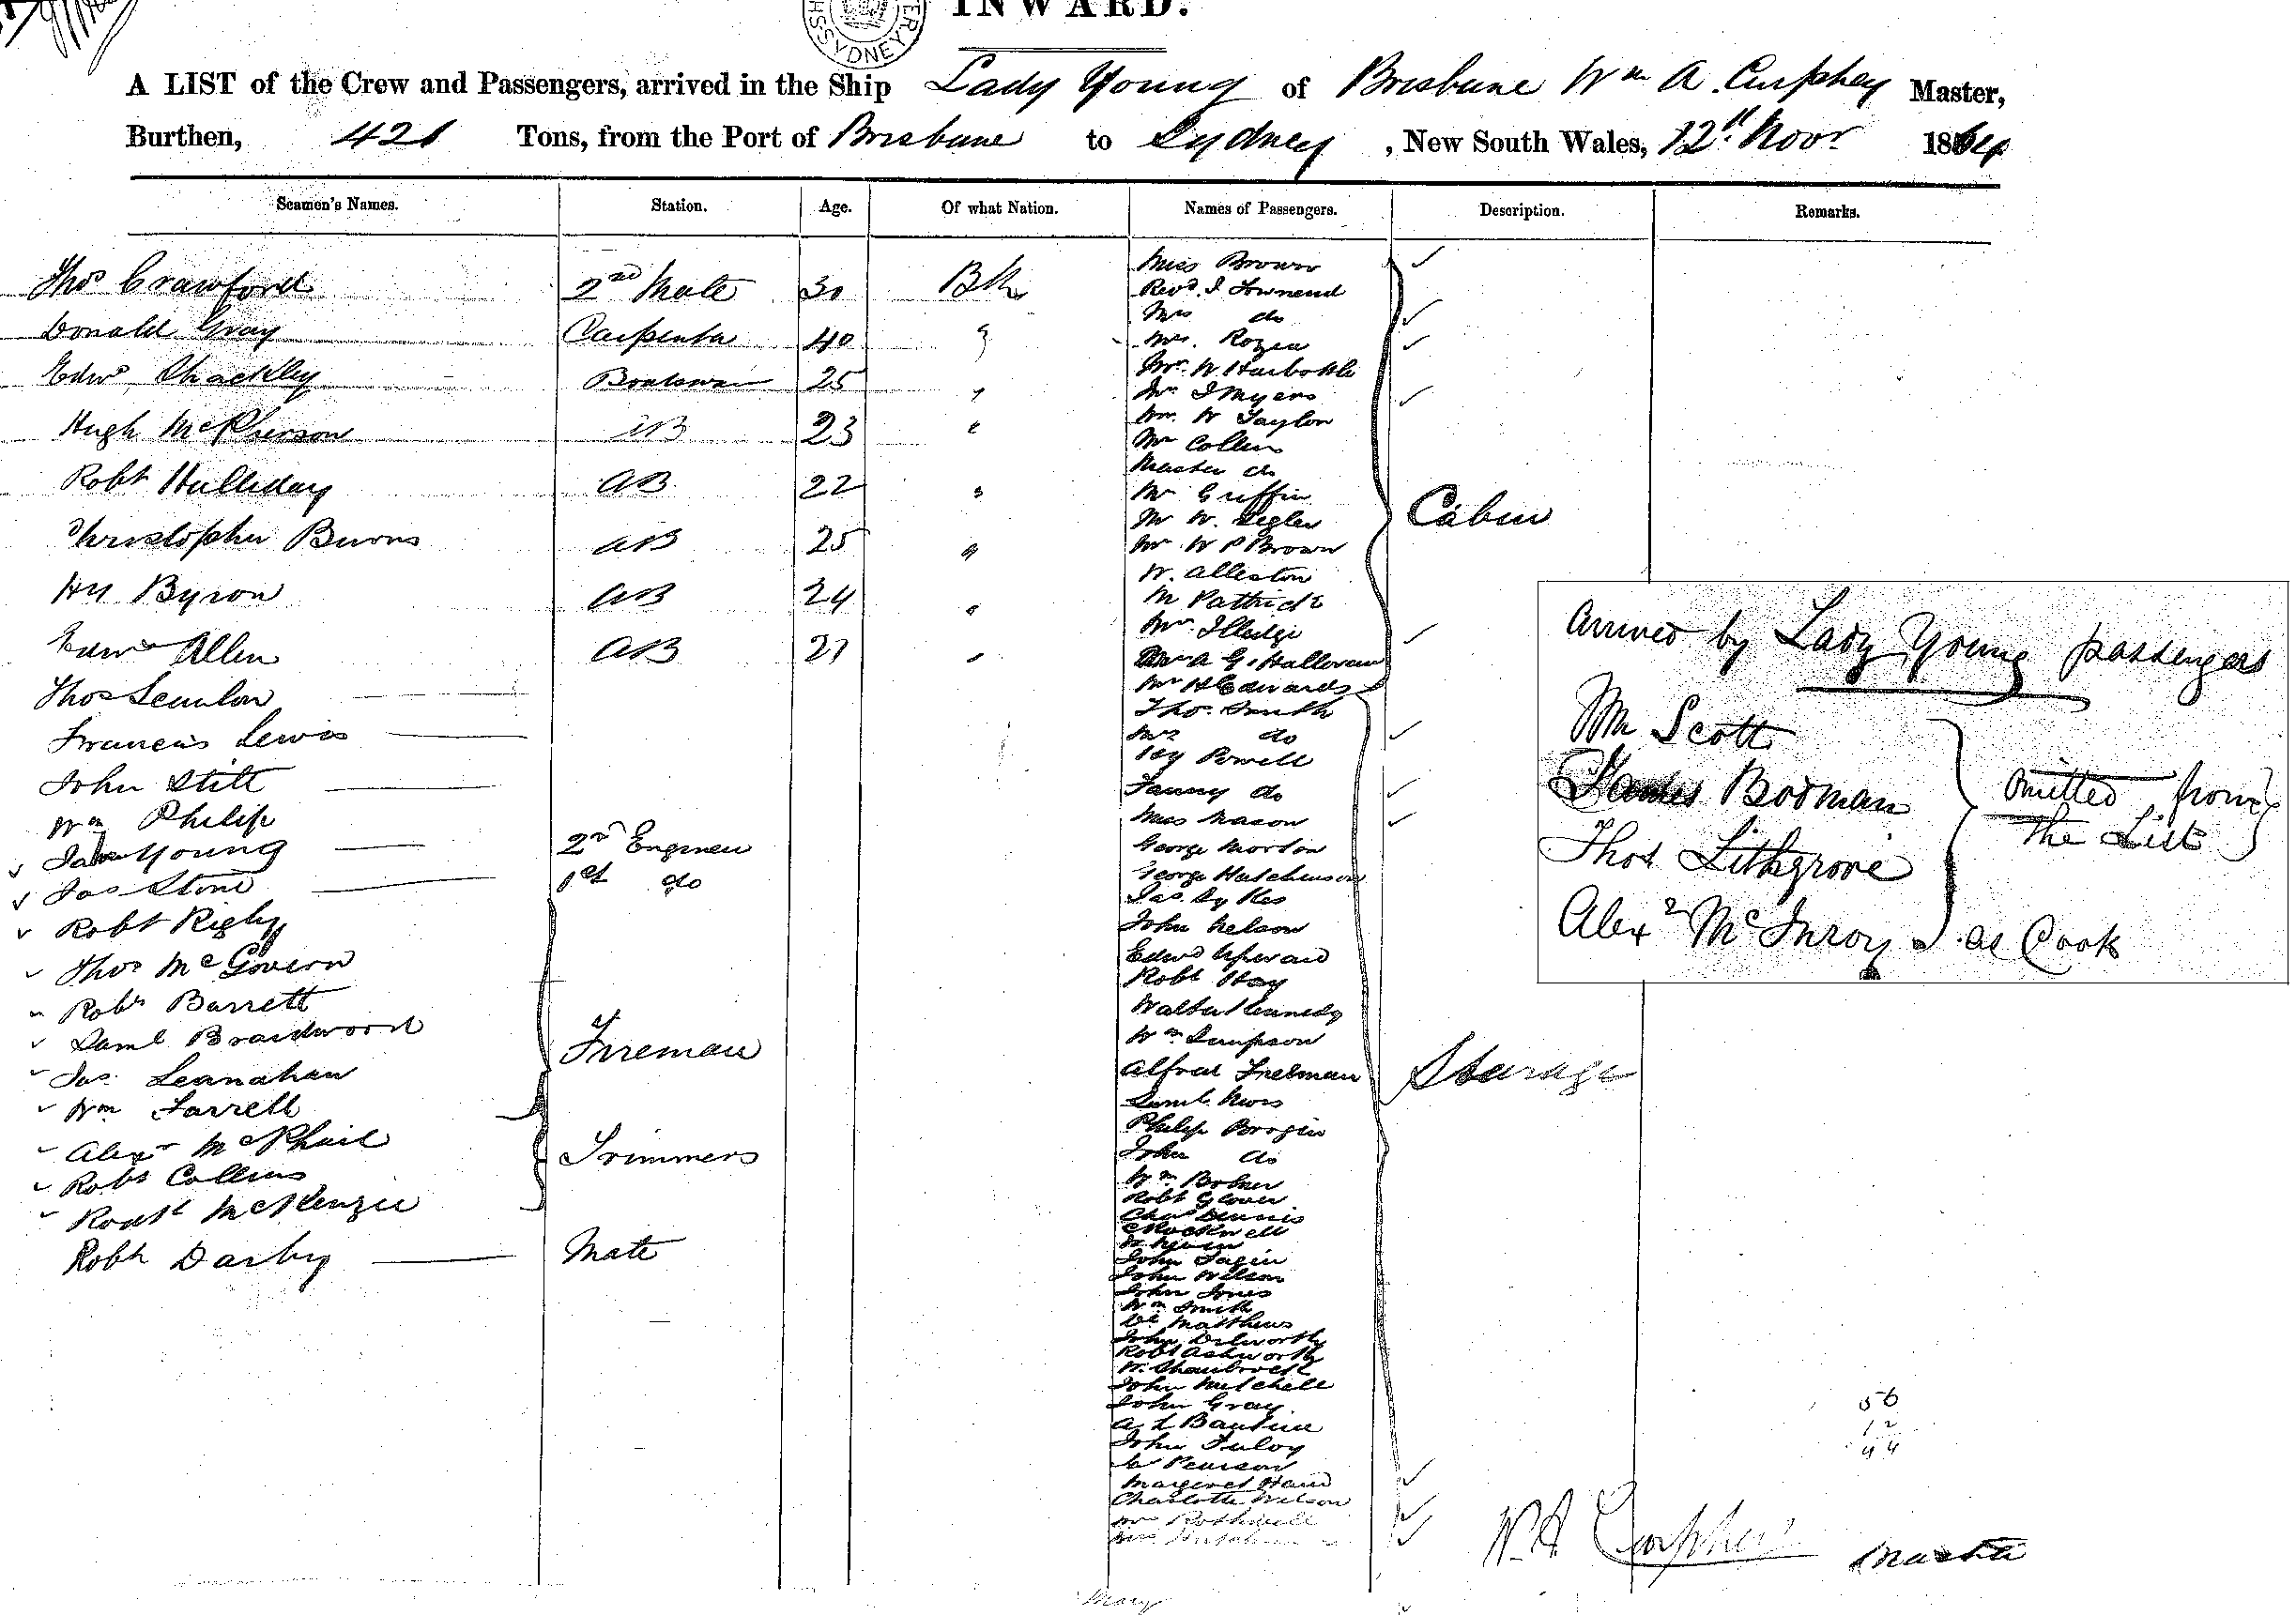 INWARD.
A LIST of the Crew and Passengers, arrived in the Ship Lady Young of Brisbane Wm A. Curphey Master,
Burthen, 421 Tons, from the Port of Brisbane to Sydney, New South Wales, 12th Novr 1864
Seamen's Names. Station. Age. Of what Nation. Names of Passengers. Description. Remarks.
Thos Crawford 2nd Mate 30 Bh
Donald Gray Carpenter 40 "
Edwd Shackley Boatswain 25 "
Hugh McPherson AB 23 "
Robt Halliday AB 22 "
Christopher Burns AB 25 "
Hy Byron AB 24 "
Edwd Allen AB 27 "
Thos Scanlon
Francis Lewis
John Stitt
Wm Philip
Young 2nd Engineer
Jas Stone 1st do
Robt Rigby
Thos McGovern
Robt Barrett
Saml Braidwood
Fireman
Jas Leanahan
Wm Farrell
Alexr McPhail
Trimmers
Robt Collins
Robt McKenzie
Robt Darby Mate
Miss Brown
Revd J Townend
Mrs do
Mrs. Rozea
Mr W Harbottle
J Myers
Mr. W Taylor
Mr Collins
Master do
Mr Griffin
Mr W. Segler
Mr W P Brown
W. Alleston
M Pattride
Illidge
A G. Halloran
Mr H Edwards
Cabin
Thos. Smith
Mrs do
Hy Powell
Fanny do
Miss Mason
George Morton
George Hutchinson
Jas. Sykes
John Nelson
Edwd Upward
Robt Hay
Walter Kennedy
Wm Simpson
Alfred Freeman
Saml
Philip
John do
Wm
Robt Glover
Chas Dennis
C Rockwell
John
John Wilson
John Jones
Wm Smith
Matthews
John Dilworth
Robt Ashworth
W.
John Mitchell
John Gray
A L
John
Pearson
Margaret Hand
Charlotte Wilson
Rothwell
Steerage
Mary
Arrived by Lady Young passengers
Mr Scott
James Bodman
Thos Lithgrove
Omitted from
the List
Alexr McInroy as Cook
56
12
44
W. A. Curphey Master